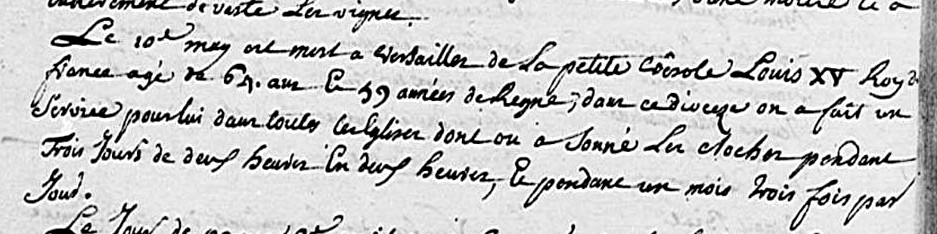 de reste Les vignes.
Le 10e may est mort a versailles de La petite verole Louis XV Roy de
france agé de 64. ans Et 59 années de Regne; dans ce dioceze on a fait un
Service pour lui dans toutes les Eglises dont on a sonné Les cloches pendant
Trois Jours de deux heures En deux heures, Et pendant un mois trois fois par
Jour.
Le Jour de